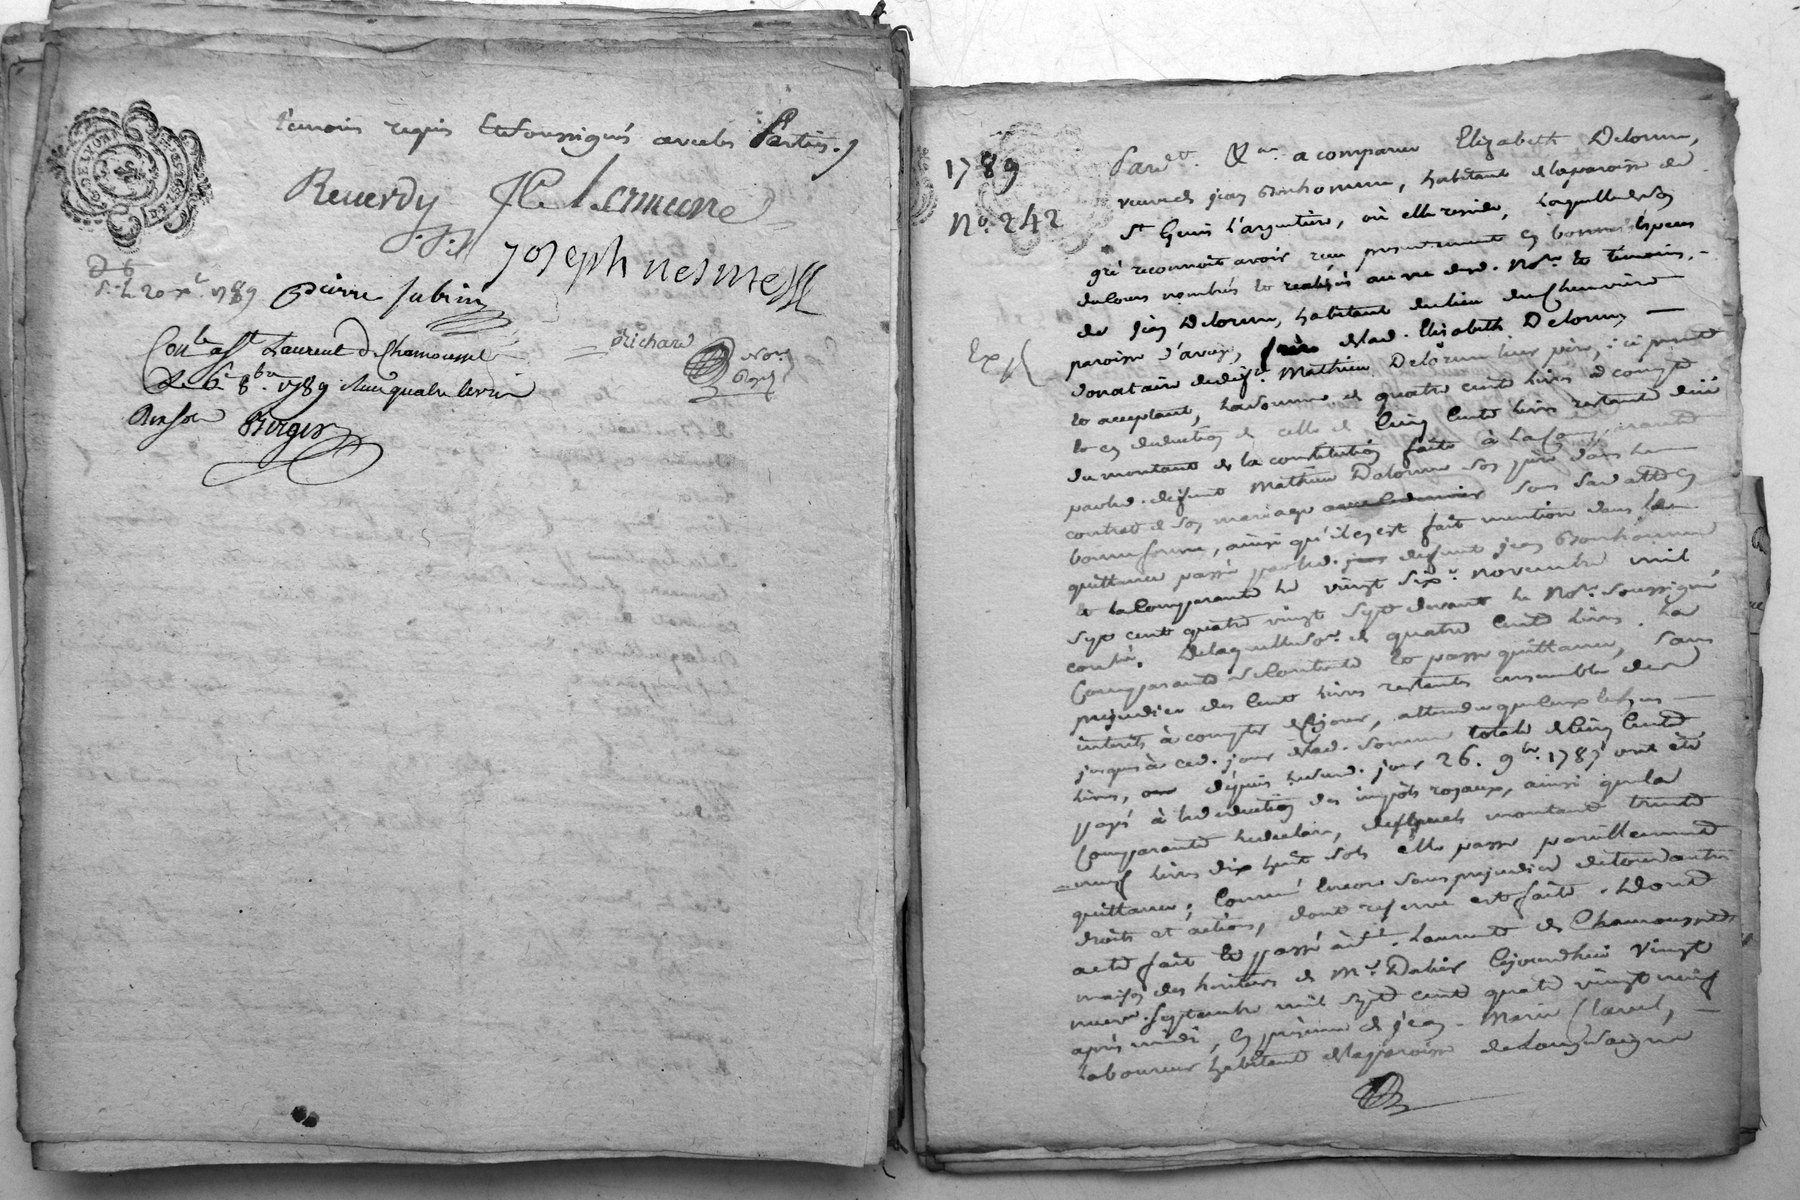 témoins requis et soussignés avec les Parties.
Reverdy
joseph nesme
pierre jubin
Richard Nore
Conlé a St Laurent de Chamousset
Le 6e 8bre 1789
Berger
1789
No. 242
Pard.t &.a a comparu Elizabeth Delorme,
veuve de jean Bonhomme, habitante de la paroisse de
St Genis L'argentiere, où elle reside, Laquelle de son
gré reconnoit avoir reçu presentement en bonnes Especes
de cours nombrés et realisés au vu desd. Nore et témoins,
de jean Delorme, habitant du lieu du Chenviere
paroisse d'aveize, frere de lad. Elizabeth Delorme
Ex
donataire dudéft Mathieu Delorme leur père, ici present
et acceptant, La somme de quatre cents Livres à compte
et en deduction de celle de Cinq Cents Livres restante düe
du montant de la constitution faite à La Comparante
par led. defunt Mathieu Delorme son père dans Le
contrat de son mariage avec led. sous sad. atte en
bonne forme, ainsi qu'il en est fait mention dans la
quittance passée par led. defunt jean Bonhomme
et La Comparante Le vingt sixe novembre mil
sept cent quatre vingt sept devant le Nore soussigné
conlée. De laquelle some de quatre Cents Livres. La
Comparante se Contente et passe quittance, sans
prejudice des Cent Livres restantes ensemble des
interêts à compter de ce jour, attendu que ceux échus
jusques à ced. jour de lad. somme totale de Cinq Cents
Livres, depuis led. jour 26. 9bre 1787 ont été
payé à la deduction des impôts royaux, ainsi que la
Comparante le declare, desquels montant trente
neuf Livres dix huit sols elle passe pareillement
quittance, Comme Encore sans prejudice de tous autres
droits et actions, dont reserve est faite. Dont
acte fait et passé à St. Laurent de Chamousset
maison des heritiers de Mr. Dalier Cejourdhui vingt
neuf. Septembre mil sept cent quatre vingt neuf
après midi, En présence de jean-Marie Clavel,
Laboureur habitant de la paroisse de Longessaigne